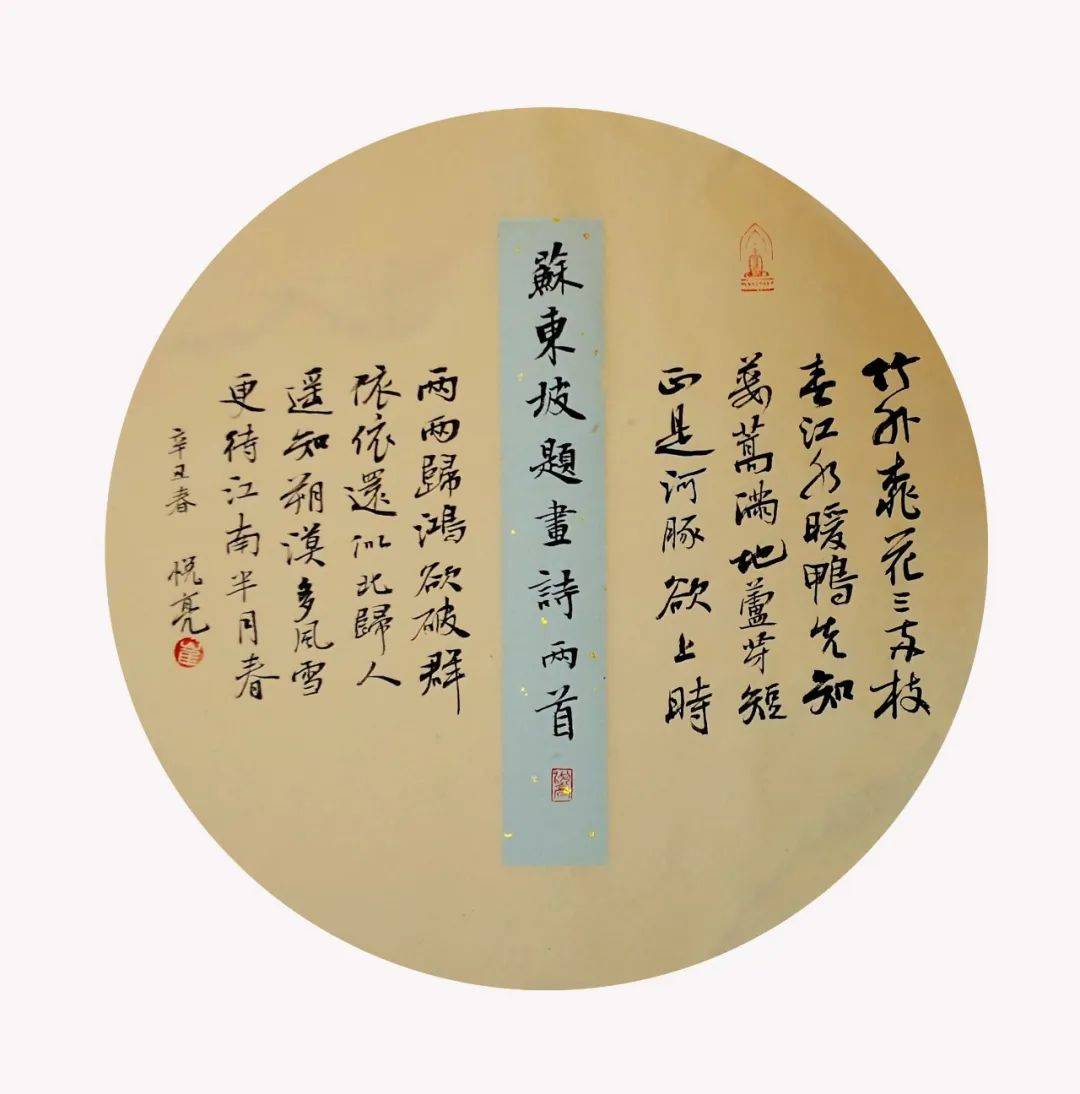 竹外桃花三兩枝
春江水暖鴨先知
蔞蒿滿地蘆芽短
正是河豚欲上時
蘇東坡題畫詩兩首
兩兩歸鴻欲破群
依依還似北歸人
遥知朔漠多風雪
更待江南半月春
辛丑春 悦亮